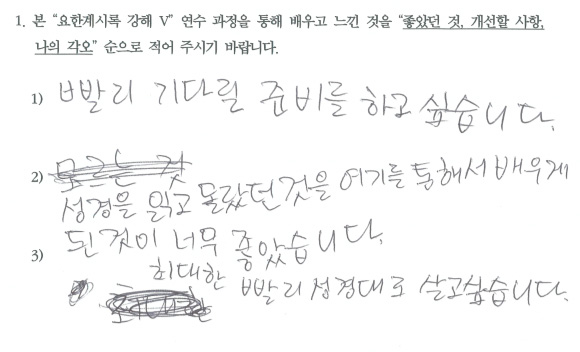 1. 본 "요한계시록 강해 V" 연수 과정을 통해 배우고 느낀 것을 "좋았던 것, 개선할 사항,
나의 각오" 순으로 적어 주시기 바랍니다.
1) ㅂ발리 기다릴 준비를 하고 싶습니다.
2) 모르는 것
성경을 읽고 몰랐던 것을 여기를 통해서 배우게
3) 된 것이 너무 좋았습니다.
최대한 ㅃ발리 성경대로 살고싶습니다.